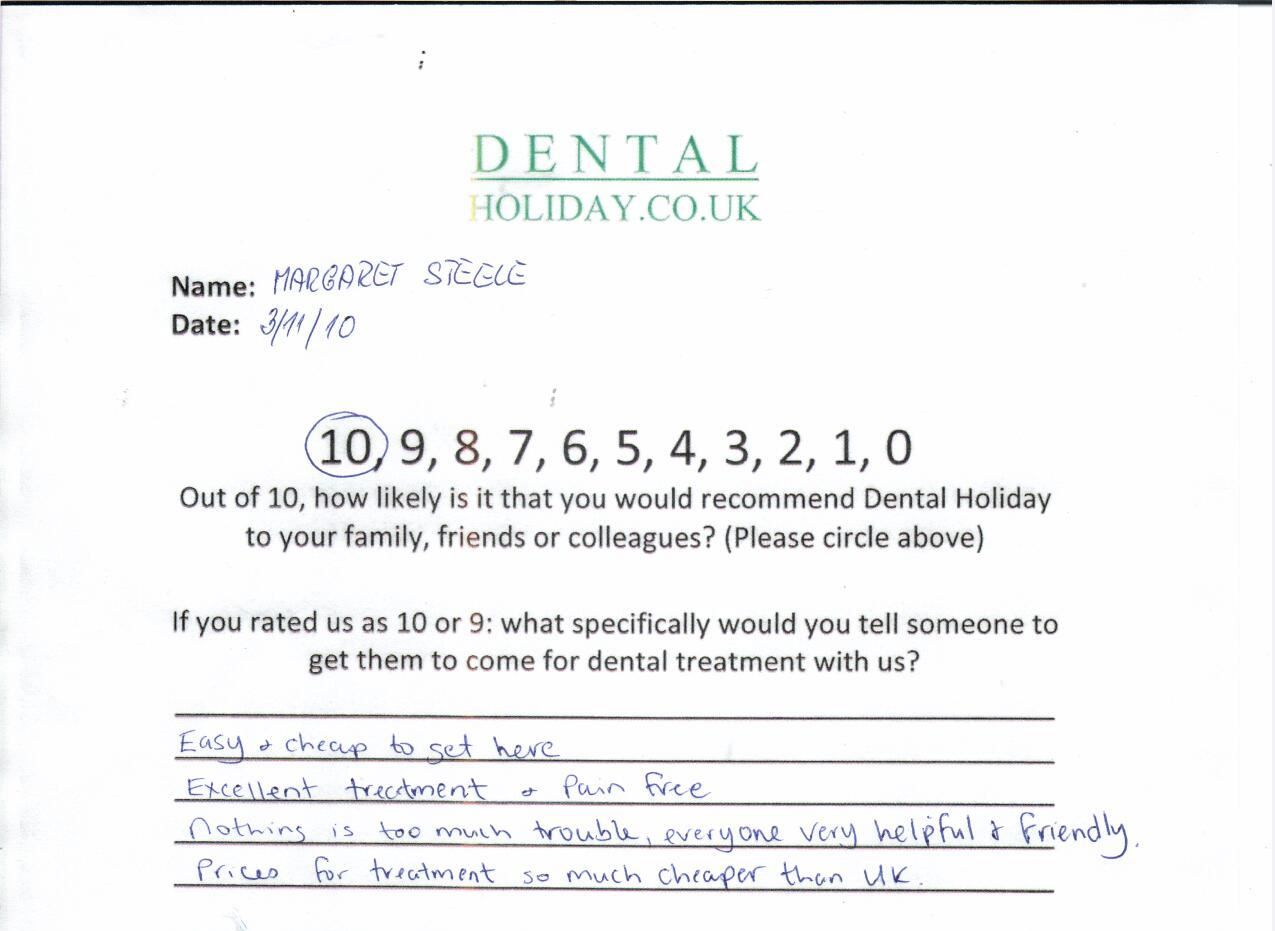 DENTAL
HOLIDAY.CO.UK
Name: MARGARET STEELE
Date: 3/11/10
10, 9, 8, 7, 6, 5, 4, 3, 2, 1, 0
Out of 10, how likely is it that you would recommend Dental Holiday
to your family, friends or colleagues? (Please circle above)
If you rated us as 10 or 9: what specifically would you tell someone to
get them to come for dental treatment with us?
Easy & cheap to get here
Excellent treatment & Pain free
Nothing is too much trouble, everyone very helpful & friendly.
Prices for treatment so much cheaper than UK.